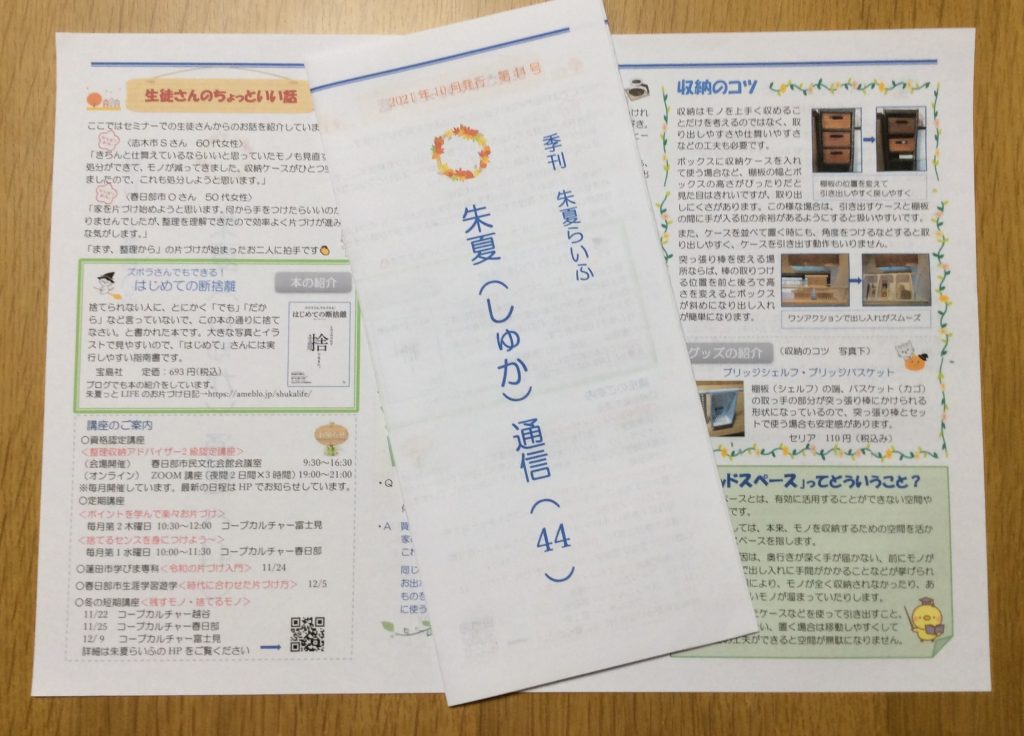 生徒さんのちょっといい話
ここではセミナーでの生徒さんからのお話を紹介していま
〈志木市Sさん 60代女性〉
「きちんと仕替えているならいいと思っていたモノも見直す
処分ができて、モノが減ってきました。収納ケースがひとつ空
ましたので、これも処分しようと思います。」
〈春日部市Oさん 50代女性〉
「家を片づけ始めようと思います。何から手をつけたらいいのか
りませんでしたが、整理を理解できたので効率よく片づけが進み
な気がします。」
「まず、整理から」の片づけが始まったお二人に拍手です
ズボラさんでもできる!
はじめての断捨離
本の紹介
捨てられない人に、とにかく「でも」「だか
ら」など言っていないで、この本の通りに捨て
なさい。と書かれた本です。大きな写真とイラ
ストで見やすいので、「はじめて」さんには実
行しやすい指南書です。
宝島社 定価:693円(税込)
ブログでも本の紹介をしています。
朱夏っとLIFEのお片づけ日記→https://ameblo.jp/shukalife/
はじめての断捨離
捨
講座のご案内
お知らせ
○資格認定講座
<整理収納アドバイザー2級認定講座>
(会場開催) 春日部市民文化会館会議室 9:30～16:30
(オンライン) ZOOM講座(夜間2日間×3時間)19:00～21:00
※毎月開催しています。最新の日程はHPでお知らせしています。
○定期講座
<ポイントを学んで楽々お片づけ>
毎月第2木曜日 10:30～12:00 コープカルチャー富士見
<捨てるセンスを身につけよう～>
毎月第1水曜日 10:00～11:30 コープカルチャー春日部
○蓮田市学びま専科<令和の片づけ入門> 11/24
○春日部市生涯学習遊学<時代に合わせた片づけ方> 12/5
○冬の短期講座<残すモノ・捨てるモノ>
11/22 コープカルチャー越谷
11/25 コープカルチャー春日部
12/9 コープカルチャー富士見
詳細は朱夏らいふのHPをご覧ください
2021年10月発行 第44号
季刊 朱夏らいふ
朱夏(しゅか)通信(44)
・Q
・A
収納のコツ
収納はモノを上手く収めるこ
とだけを考えるのではなく、取
り出しやすさや仕舞いやすさ
などの工夫も必要です。
ボックスに収納ケースを入れ
て使う場合など、棚板の幅とボ
ックスの高さがぴったりだと
見た目はきれいですが、取り出
しにくさがあります。この様な場合は、引き出すケースと棚板
の間に手が入る位の余裕があるようにすると扱いやすいです。
棚板の位置を変えて
引き出しやすく戻しやすく
また、ケースを並べて置く時にも、角度をつけるなどすると取
り出しやすく、ケースを引き出す動作もいりません。
突っ張り棒を使える場
所ならば、棒の取りつけ
る位置を前と後ろで高
さを変えるとボックス
が斜めになり出し入れ
が簡単になります。
ワンアクションで出し入れがスムーズ
グッズの紹介
(収納のコツ 写真下)
ブリッジシェルフ・ブリッジバスケット
棚板(シェルフ)の端、バスケット(カゴ)
の取っ手の部分が突っ張り棒にかけられる
形状になっているので、突っ張り棒とセッ
トで使う場合も安定感があります。
セリア 110円(税込み)
ッドスペース」ってどういうこと?
ースとは、有効に活用することができない空間や
です。
しては、本来、モノを収納するための空間を活か
ペースを指します。
因は、奥行きが深く手が届かない、前にモノが
で出し入れに手間がかかることなどが挙げられ
により、モノが全く収納されなかったり、あ
いモノが溜まっていたりします。
ケースなどを使って引き出すこと、
い、置く場合は移動しやすくして
夫ができると空間が無駄になりません。